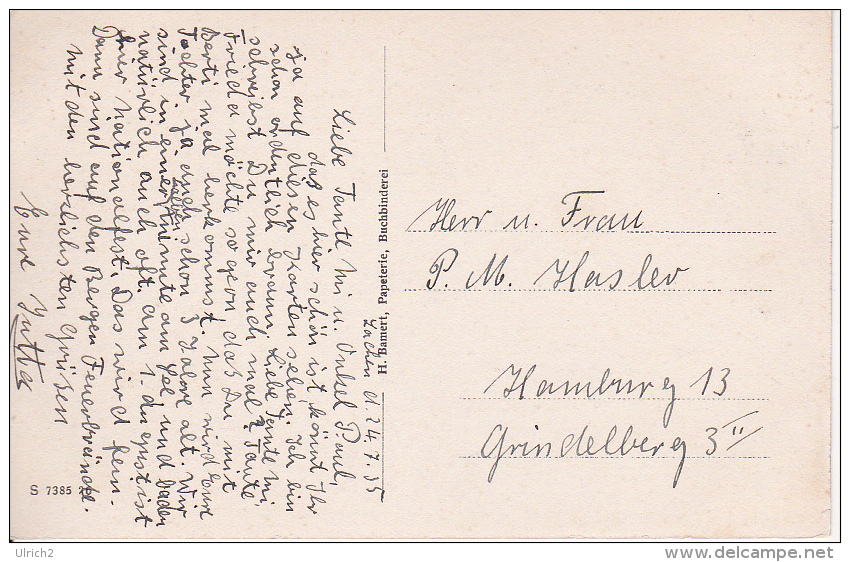 Lachen d. 24.7.35
Liebe Tante Mi u. Onkel Paul,
daß es hier schön ist könnt Ihr
ja auf diesen Karten sehen. Ich bin
schon ordentlich braun. Liebe Tante Mi,
schreibst Du mir auch mal? Tante
Frieda möchte so gern, daß Du mit
Berti mal herkommst. Nun wird Eure
Tochter ja auch schon 3 Jahre alt. Wir
sind in einer am See und baden
natürlich auch oft. Am 1. August ist
hier Nationalfest. Das wird fein.
Dann sind auf den Bergen Feuerbrände.
Mit den herzlichsten Grüßen
Eure Jutta
H. Bamert, Papeterie, Buchbinderei
Herr u. Frau
P. M. Hasler
Hamburg 13
Grindelberg 3 II
S 7385
Ulrich2
www.delcampe.net